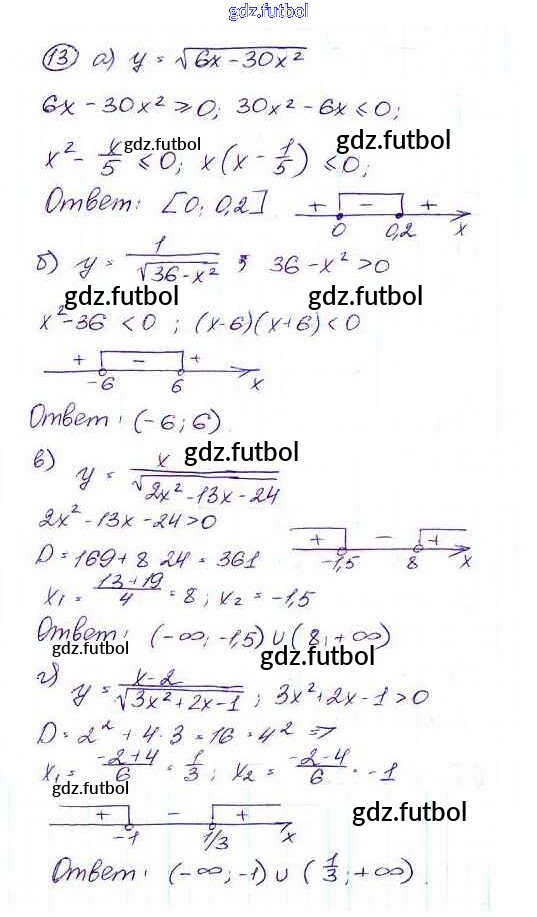 gdz.futbol
13 а) y = √6x - 30x²
6x - 30x² ⩾ 0; 30x² - 6x ⩽ 0;
x² - x/5 ⩽ 0; x(x - 1/5) ⩽ 0;
gdz.futbol gdz.futbol
Ответ: [0; 0,2]
+ - +
0 0,2 x
б) y = 1/√36 - x² ; 36 - x² > 0
gdz.futbol gdz.futbol
x² - 36 < 0 ; (x-6)(x+6) < 0
+ - +
-6 6 x
Ответ: (-6; 6)
gdz.futbol
в) y = x/√2x² - 13x - 24
2x² - 13x - 24 > 0
+ - +
-1,5 8 x
D = 169 + 8 24 = 361
x₁ = 13+19/4 = 8; x₂ = -1,5
Ответ: (-∞; -1,5) ∪ (8; +∞)
gdz.futbol gdz.futbol
г) y = x-2/√3x²+2x-1 ; 3x²+2x-1 > 0
gdz.futbol
D = 2² + 4·3 = 16 = 4² ⇒
x₁ = -2+4/6 = 1/3; x₂ = -2-4/6 = -1
gdz.futbol gdz.futbol
+ - +
-1 1/3 x
gdz.futbol
Ответ: (-∞; -1) ∪ (1/3; +∞).